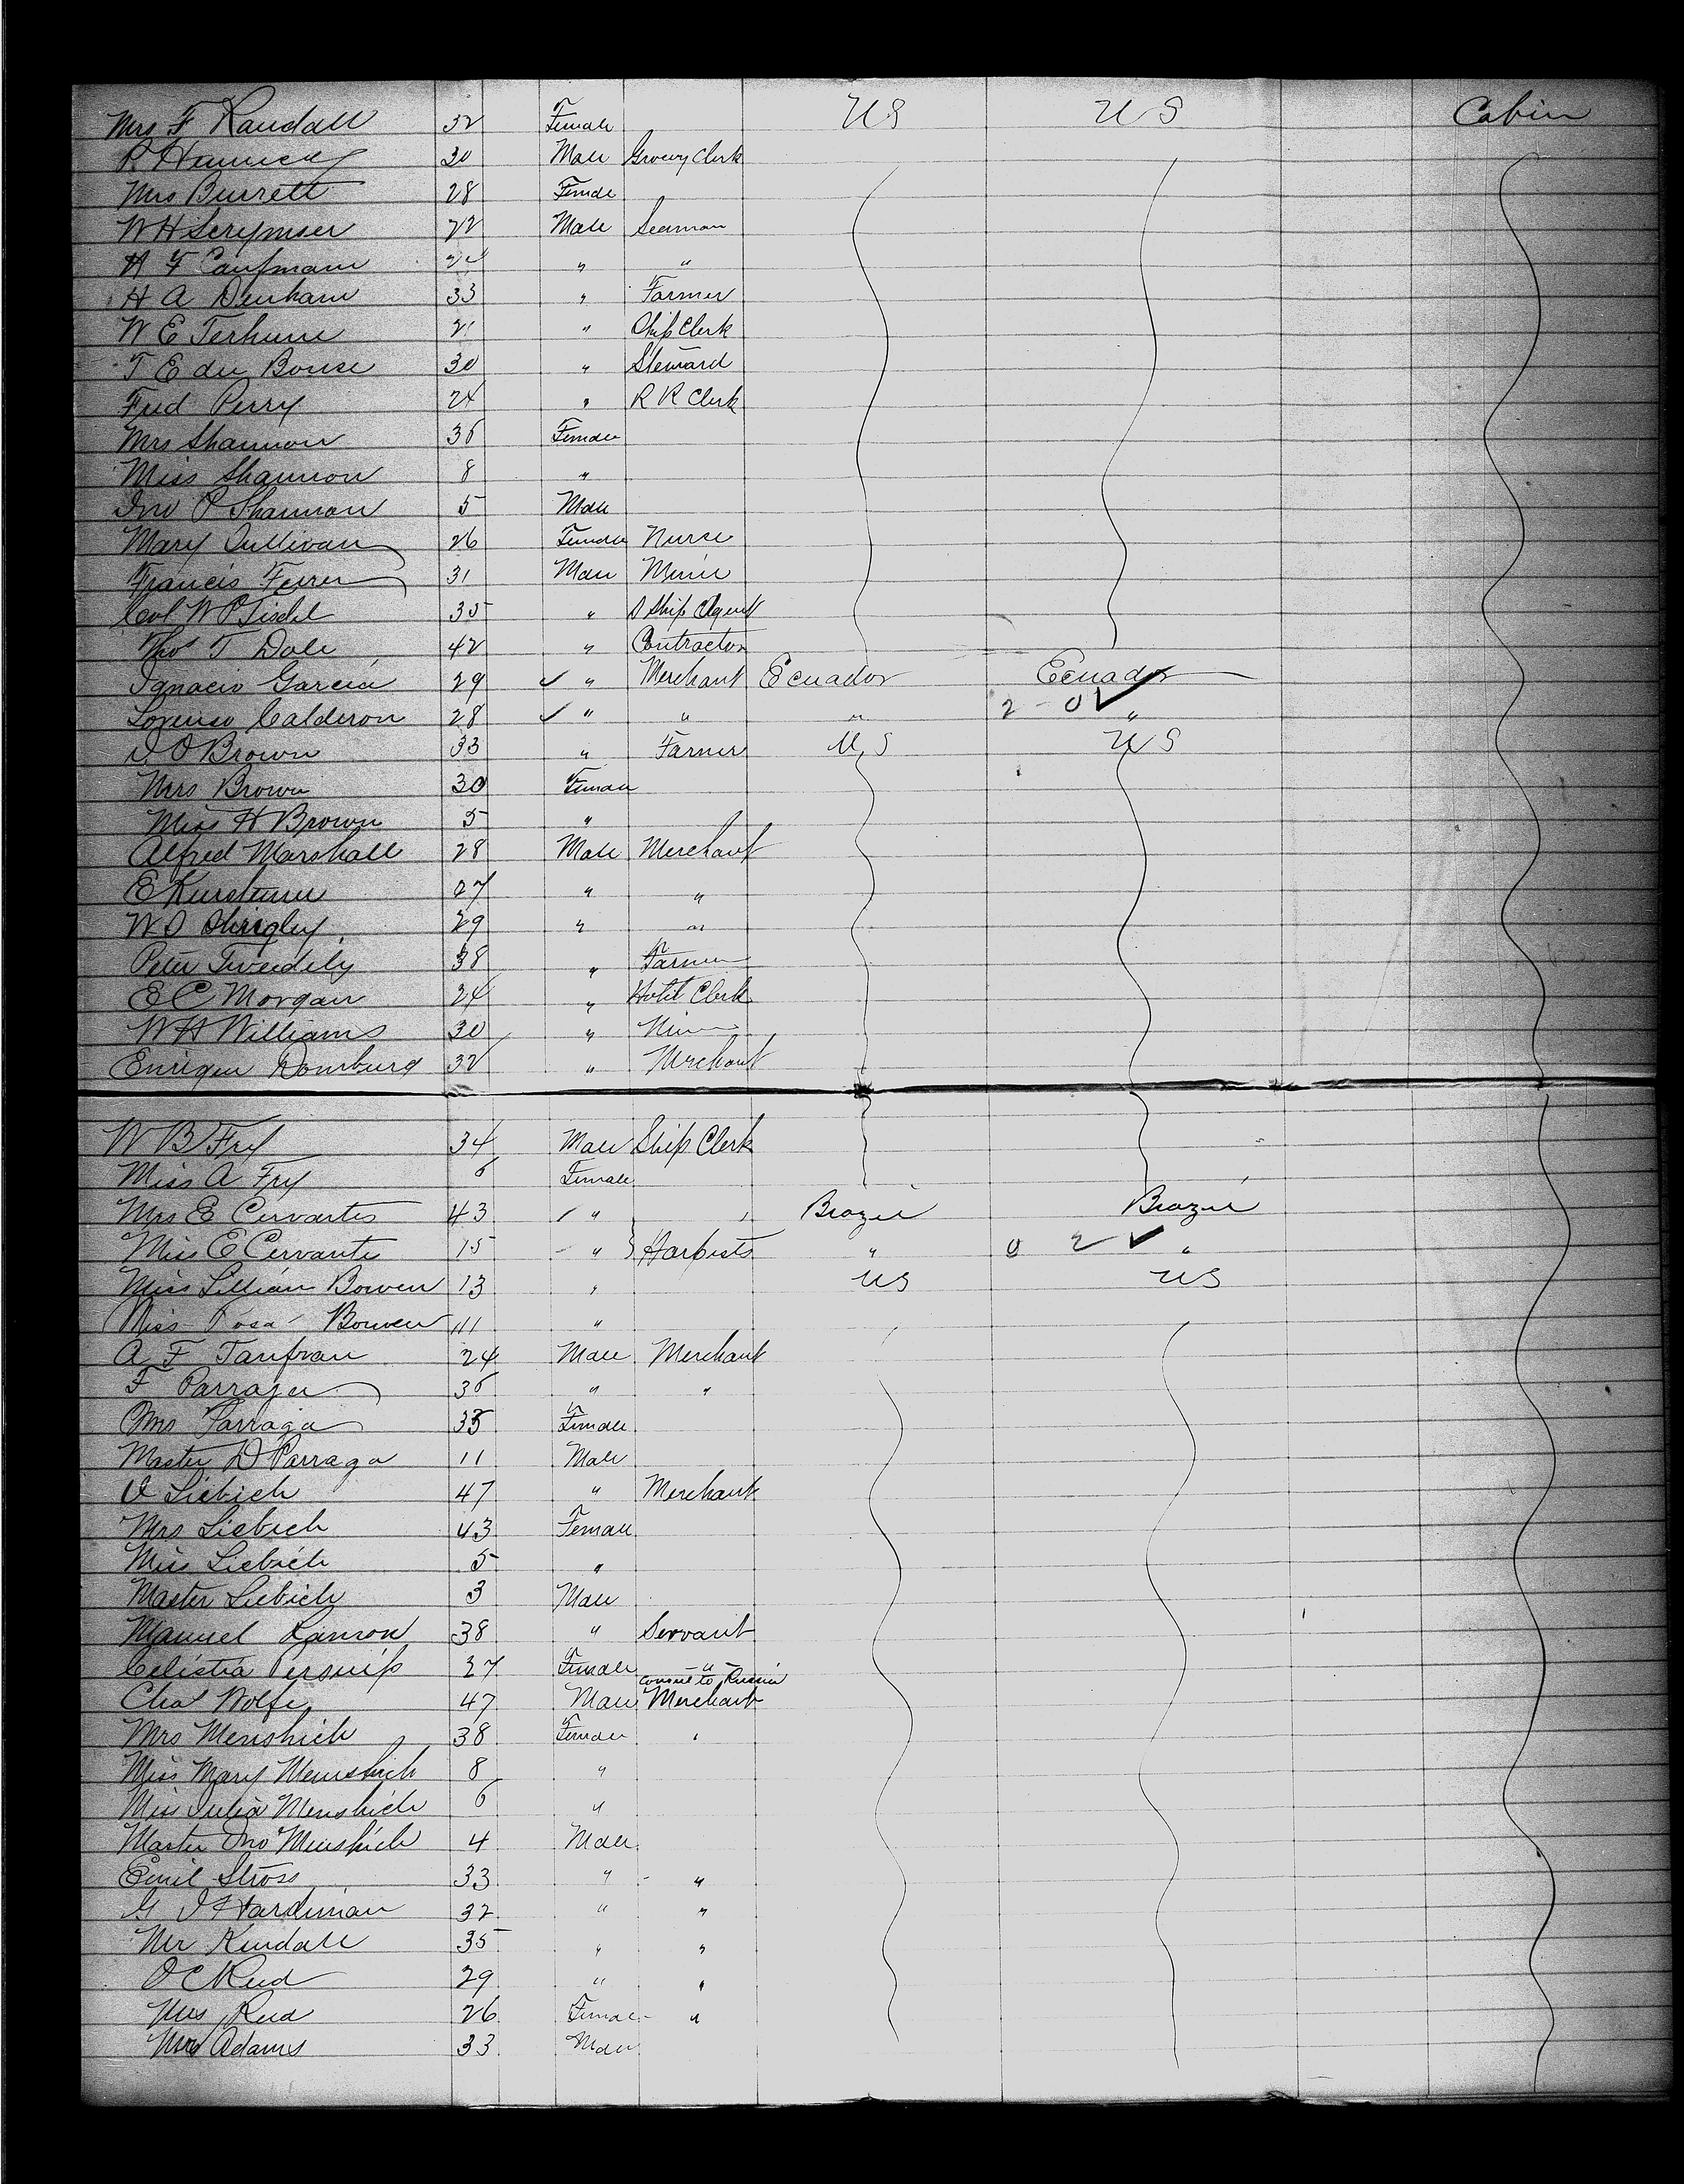 Mrs F Randall 32 Female US US Cabin
R 30 Male Grocery Clerk
Mrs Burrett 28 Female
W H Scrymser 22 Male Seaman
H F Caufmann 24 " "
H A Denham 33 " Farmer
W E Terhune 21 " Ship Clerk
T E du Bouse 30 " Steward
Fred Perry 24 " R R Clerk
Mrs Shannon 36 Female
Miss Shannon 8 "
Jno P Shannon 5 Male
Mary Sullivan 26 Female Nurse
Francis Ferrer 31 Male Miner
Col W P Tisdel 35 " S Ship Agent
Thos T Dale 42 " Contractor
Ignacio Garcia 29 ✓ " Merchant Ecuador Ecuador
2 - 0 ✓
Lorenso Calderon 28 ✓ " " " "
O Brown 33 " Farmer U S U S
Mrs Brown 30 Female
Miss H Brown 5 "
Alfred Marshall 28 Male Merchant
E 27 " "
W O Shrigley 29 " "
Peter Tweedily 38 " Farmer
E C Morgan 24 " Hotel Clerk
W H Williams 30 "
Enrique Dornburg 32 " Merchant
W B Fry 34 Male Ship Clerk
Miss A Fry 6 Female
Mrs E Cervantes 43 " Brazil Brazil
Miss E Cervantes 15 " } Harpists " 0 2 ✓ "
Miss Lillian Bowen 13 " US US
Miss Rosa Bowen 11 "
A F Tanfran 24 Male Merchant
F Parraga 36 " "
Mrs Parraga 35 Female
Master D Parraga 11 Male
Liebich 47 " Merchant
Mrs Liebich 43 Female
Miss Liebich 5 "
Master Liebich 3 Male
Manuel Ramon 38 " Servant
Celistia 27 Female "
Consul to Russia
Chas Wolfe 47 Male Merchant
Mrs Menshich 38 Female "
Miss Mary Menshich 8 "
Miss Julia Menshich 6 "
Master Jno Menshich 4 Male
Emil Stross 33 " "
G I Hardiman 32 " "
Mr Kendall 35 " "
O C Reid 29 " "
Mrs Reid 26 Female "
Mrs Adams 33 Male